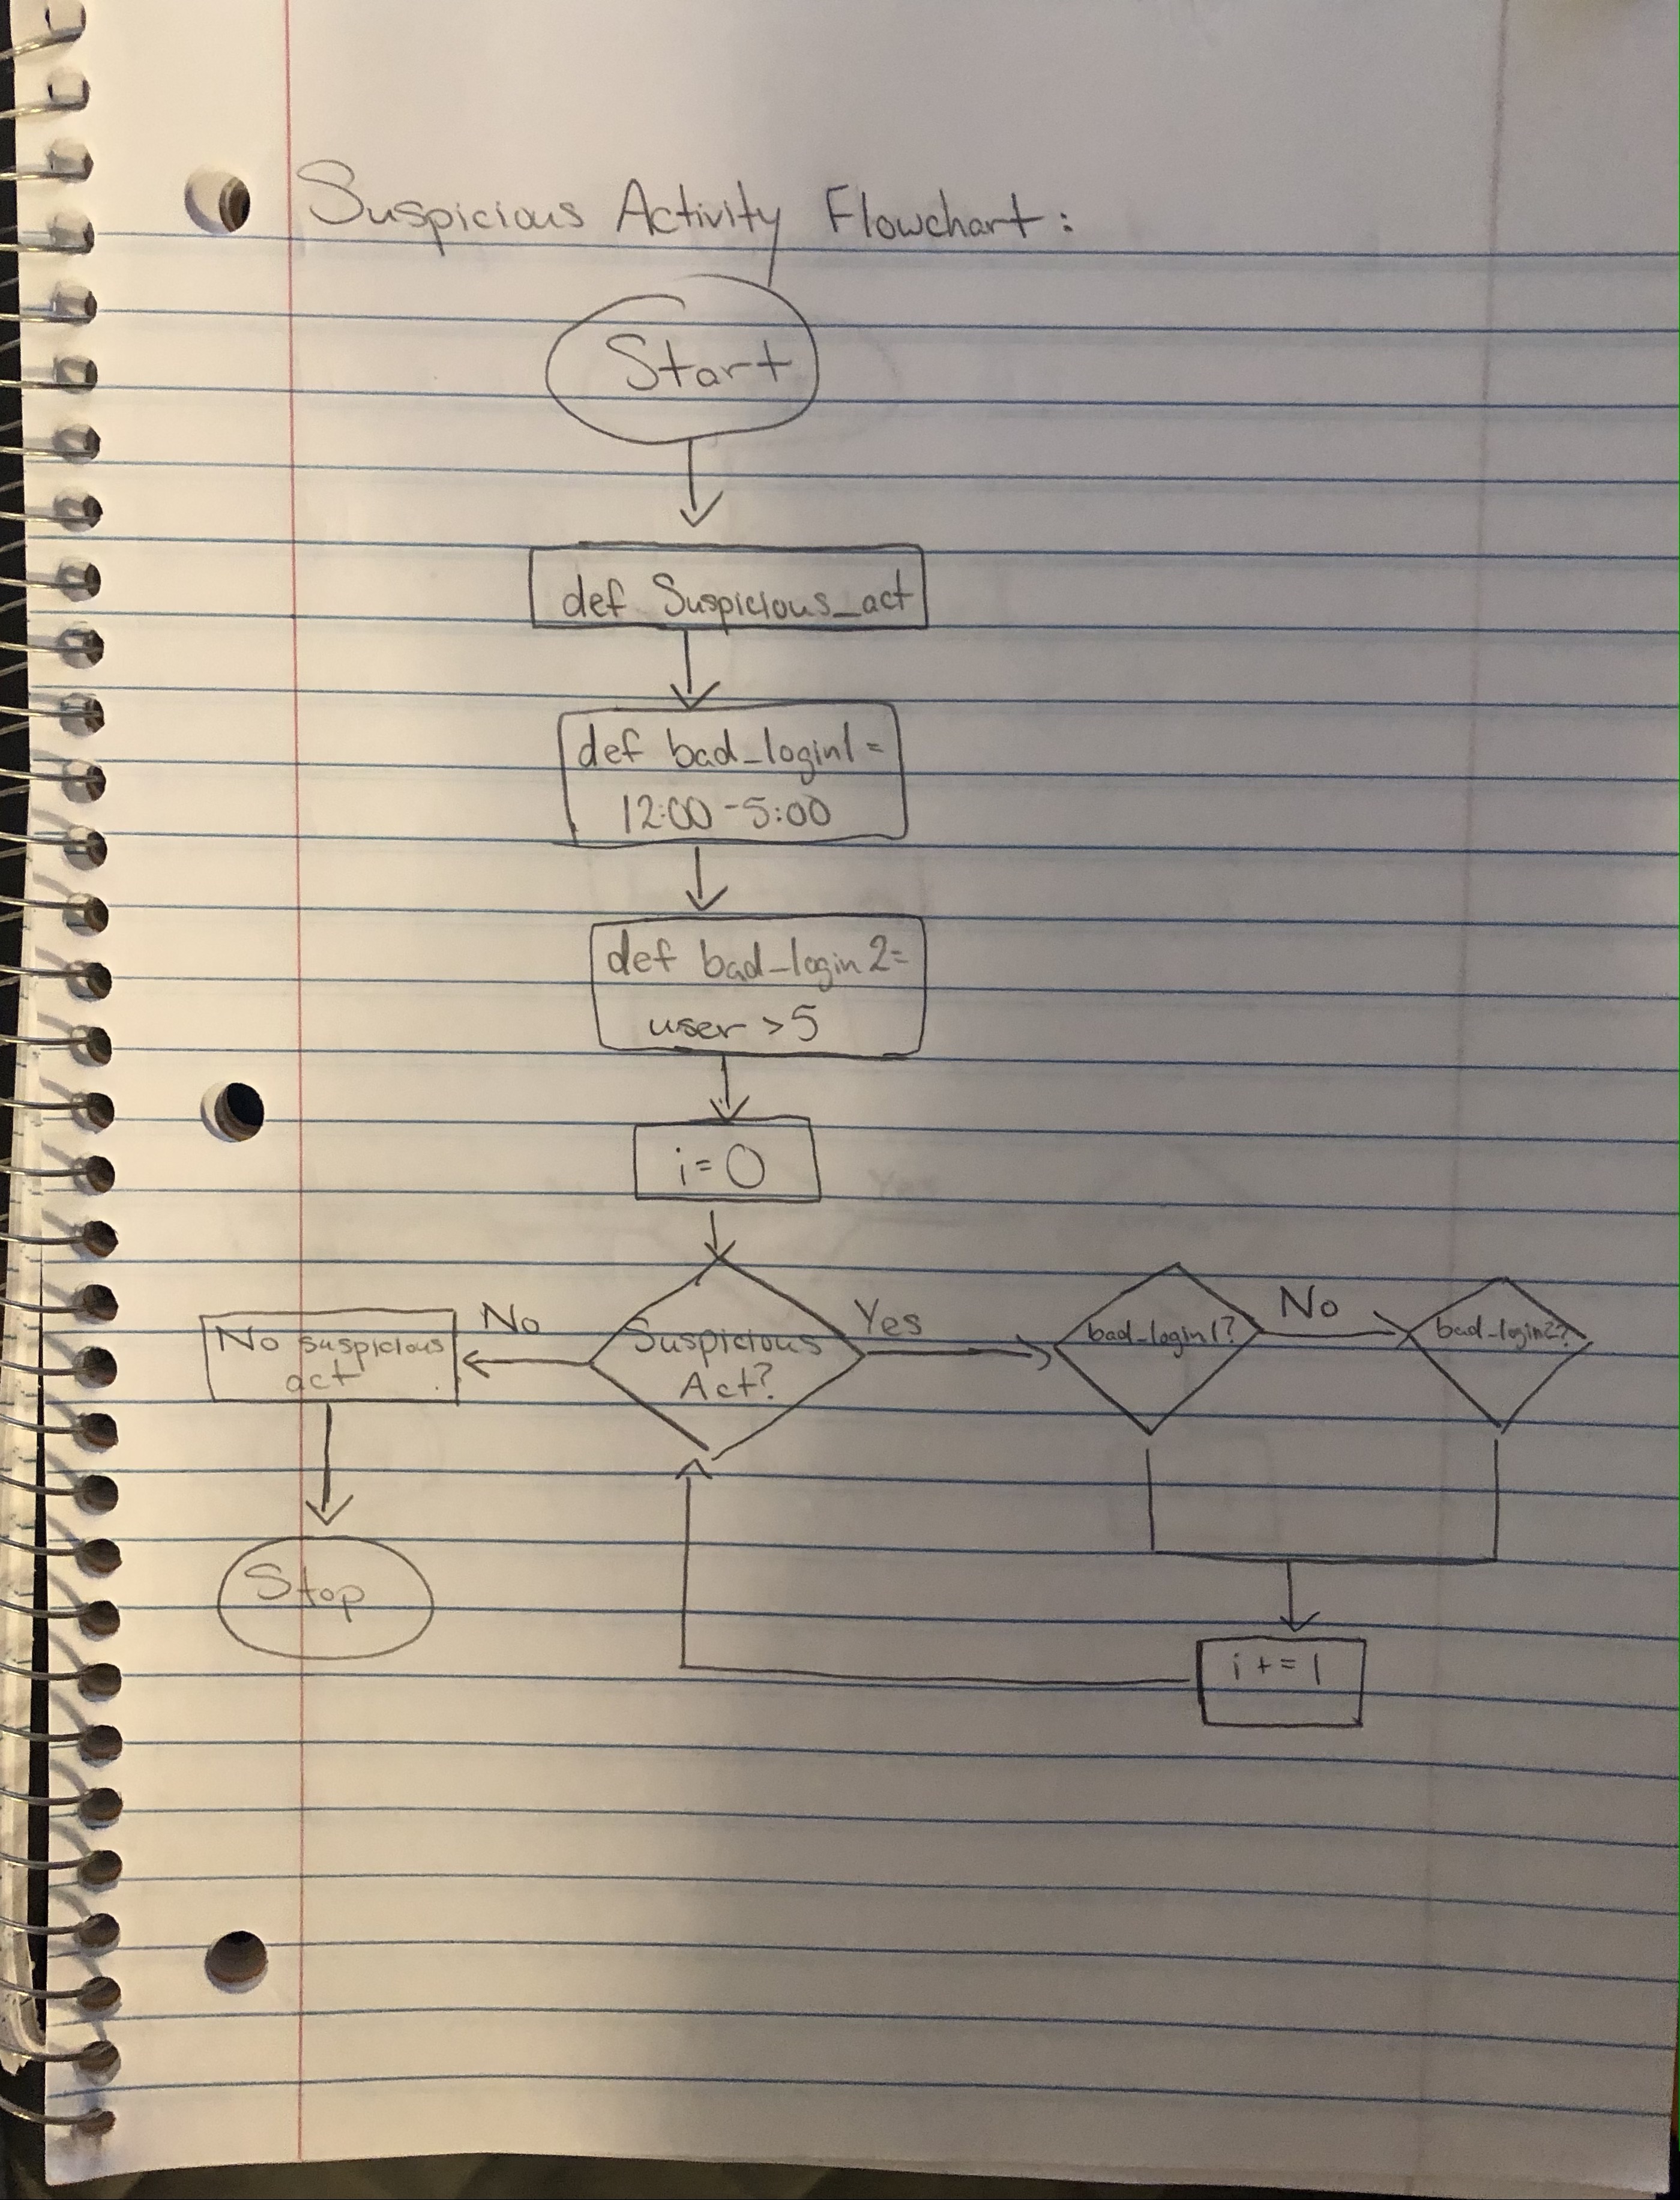 Suspicious Activity Flowchart:
Start
def Suspicious_act
def bad_login1=
12:00-5:00
def bad_login2=
user >5
i=0
No suspicious
act
No
Suspicious
Act?
Yes
bad_login1?
No
bad_login2?
Stop
i+=1